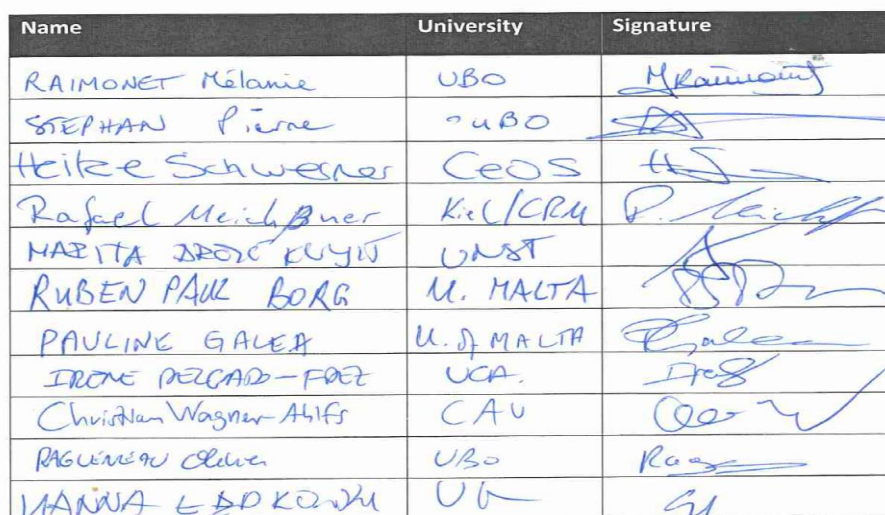 Name University Signature
RAIMONET Mélanie UBO MRaimonet
STEPHAN Pierre UBO
Heike Schwermer CeOS
Rafael Meichßner Kiel/CRM R. Meichß
MARITA
RUBEN PAUL BORG U. MALTA
PAULINE GALEA U. of MALTA Galea
IRENE DELGADO-FDEZ UCA.
Christian Wagner-Ahlfs CAU
RAGUENEAU Olivier UBO Rag
HANNA UG